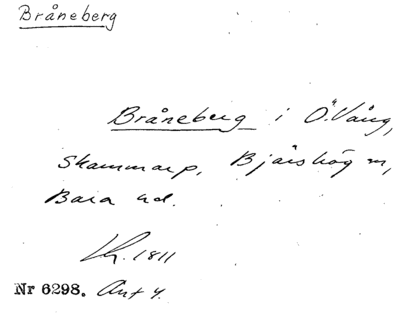 Bråneberg
Bråneberg i Ö. Vång,
Skammarp, Bjärshög m,
Bara hd.
1811
Nr 6298. Ant 4.